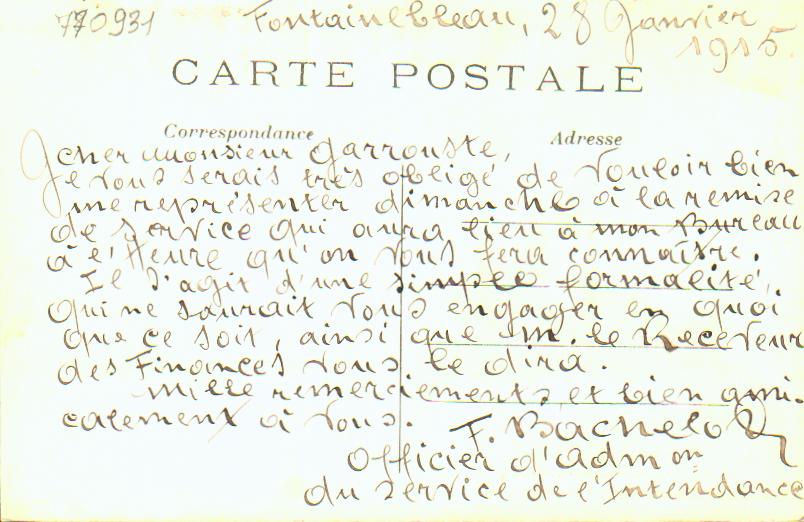 770931
Fontainebleau, 28 Janvier
1915.
CARTE POSTALE
Correspondance
Adresse
cher Monsieur Garrouste,
Je vous serais très obligé de vouloir bien
me représenter dimanche à la remise
de service qui aura lieu à mon Bureau
à l'Heure qu'on vous fera connaître.
Il s'agit d'une simple formalité,
qui ne saurait vous engager en quoi
que ce soit, ainsi que M. le Receveur
des Finances vous le dira.
Mille remerciements et bien ami-
calement à vous.
F. Bachelo
Officier d'admon
du service de l'Intendance